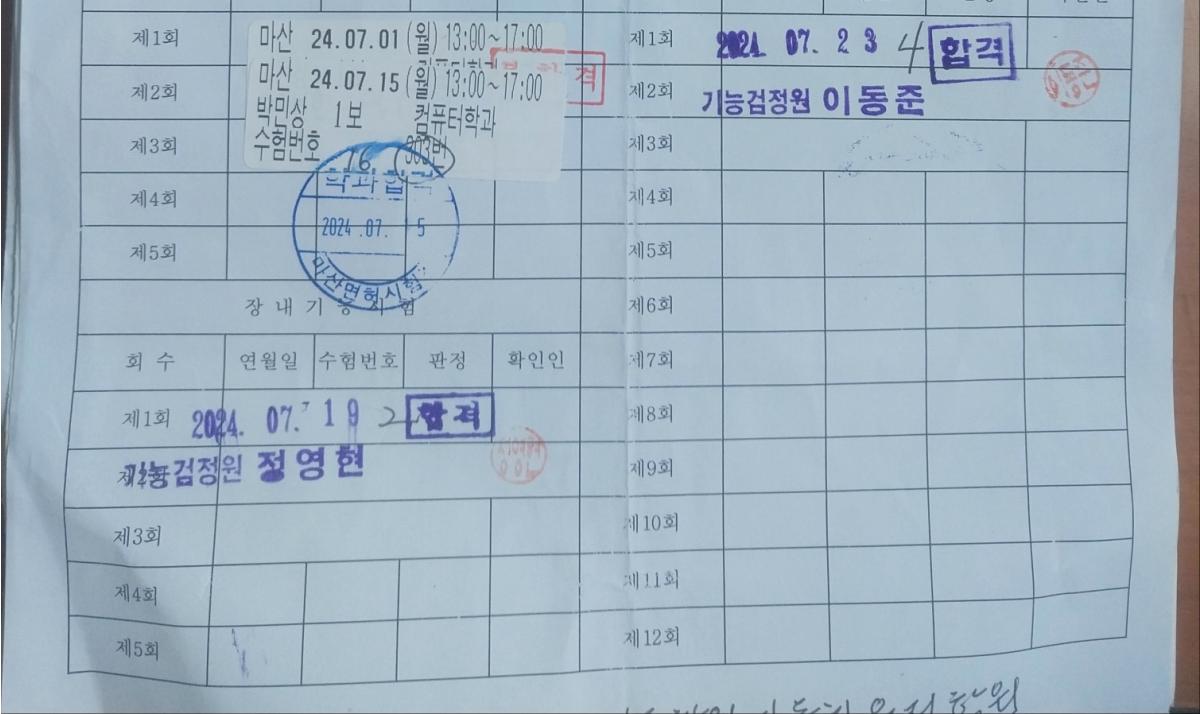 제1회
마산 24.07.01 (월) 13:00~17:00
격
제2회
마산 24.07.15 (월) 13:00~17:00
박민상 1보 컴퓨터학과
제3회
수험번호 16 303번
학과합격
제4회
2024.07. 15
제5회
마산면허시험
장내기능시험
회 수 연월일 수험번호 판정 확인인
제1회 2024. 07. 19 2 합격
제2회
기능검정원 정영현
제3회
제4회
제5회
제1회 2024. 07. 23 4 합격
제2회 기능검정원 이동준
제3회
제4회
제5회
제6회
제7회
제8회
제9회
제10회
제11회
제12회